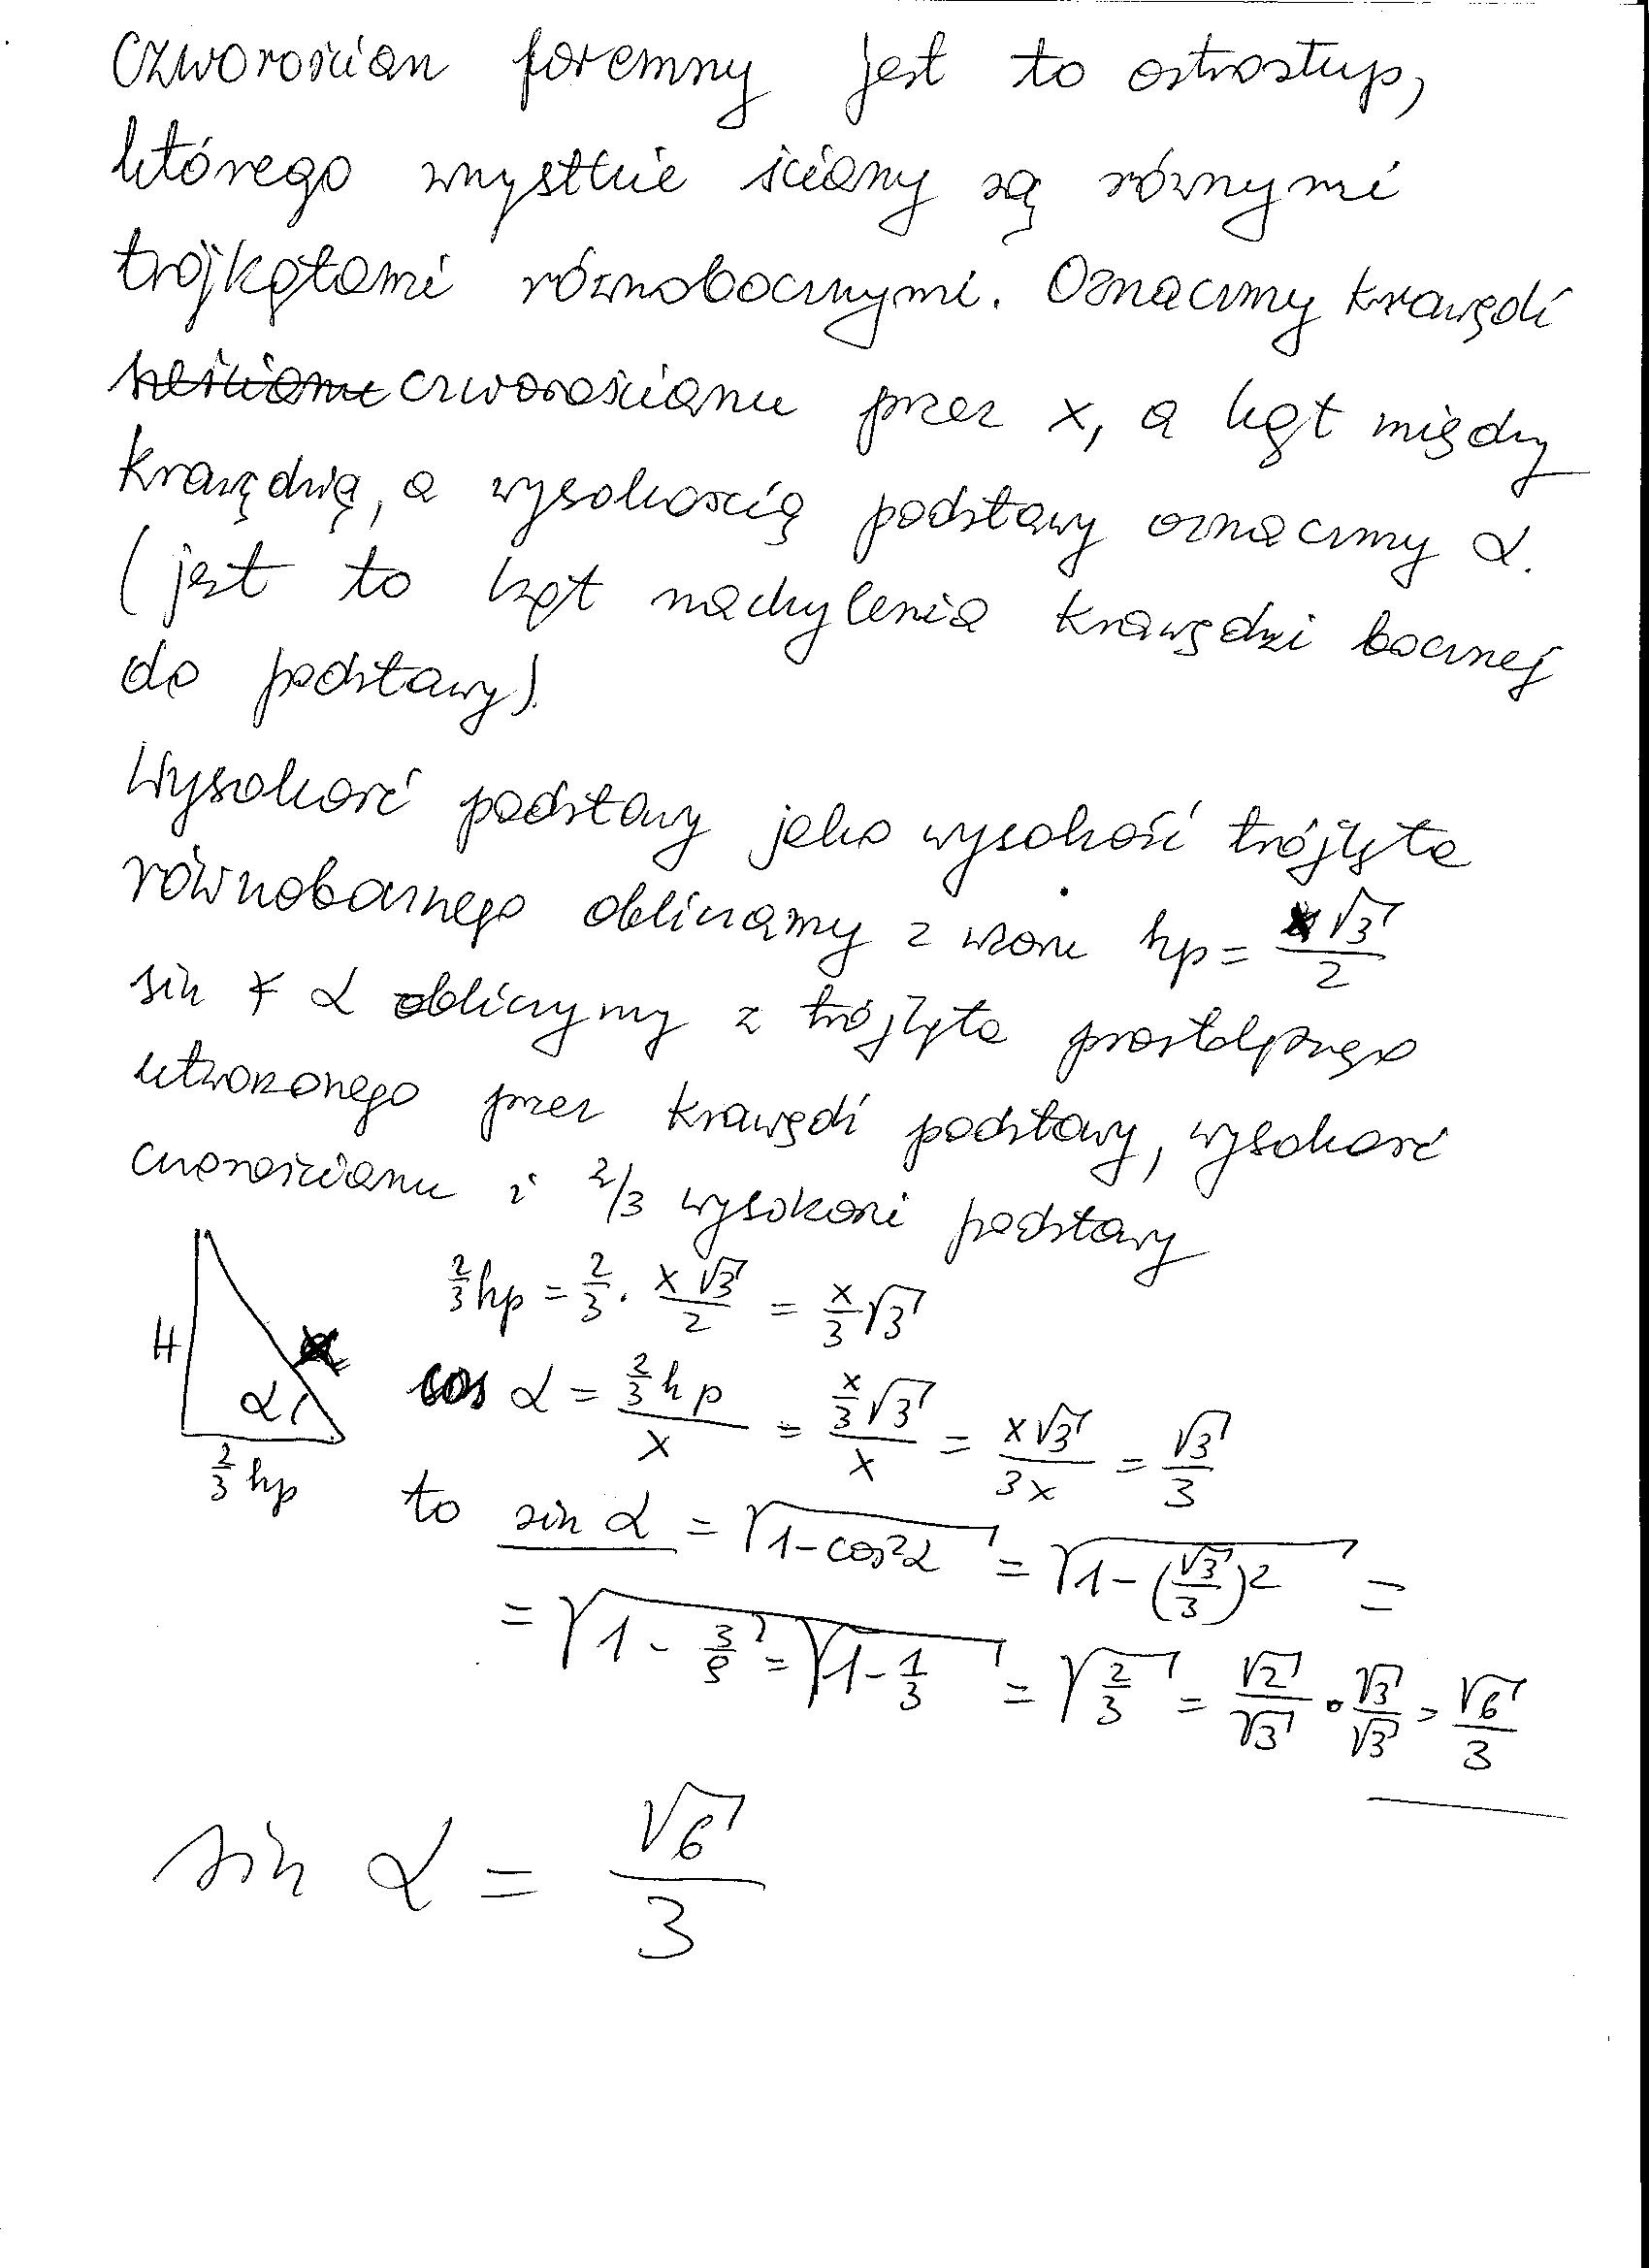 Czworościan foremny jest to ostrosłup,
którego wszystkie ściany są równymi
trójkątami równobocznymi. Oznaczmy krawędź
czworościanu przez x, a kąt między
krawędzią, a wysokością podstawy oznaczmy α.
(jest to kąt nachylenia krawędzi bocznej
do podstawy).
Wysokość podstawy jako wysokość trójkąta
równobocznego obliczamy z wzoru hp = x√3/2
sin ∢ α obliczymy z trójkąta prostokątnego
utworzonego przez krawędź podstawy, wysokość
czworościanu i 2/3 wysokości podstawy
2/3 hp = 2/3 · x√3/2 = x/3 √3
H
x
α
2/3 hp
cos α = 2/3 hp / x = x/3 √3 / x = x√3/3x = √3/3
to sin α = √(1-cos²α) = √(1-(√3/3)²) =
= √(1-3/9) = √(1-1/3) = √(2/3) = √2/√3 · √3/√3 = √6/3
sin α = √6/3